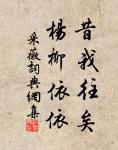 昔我往矣
楊柳依依
采薇詞典網集